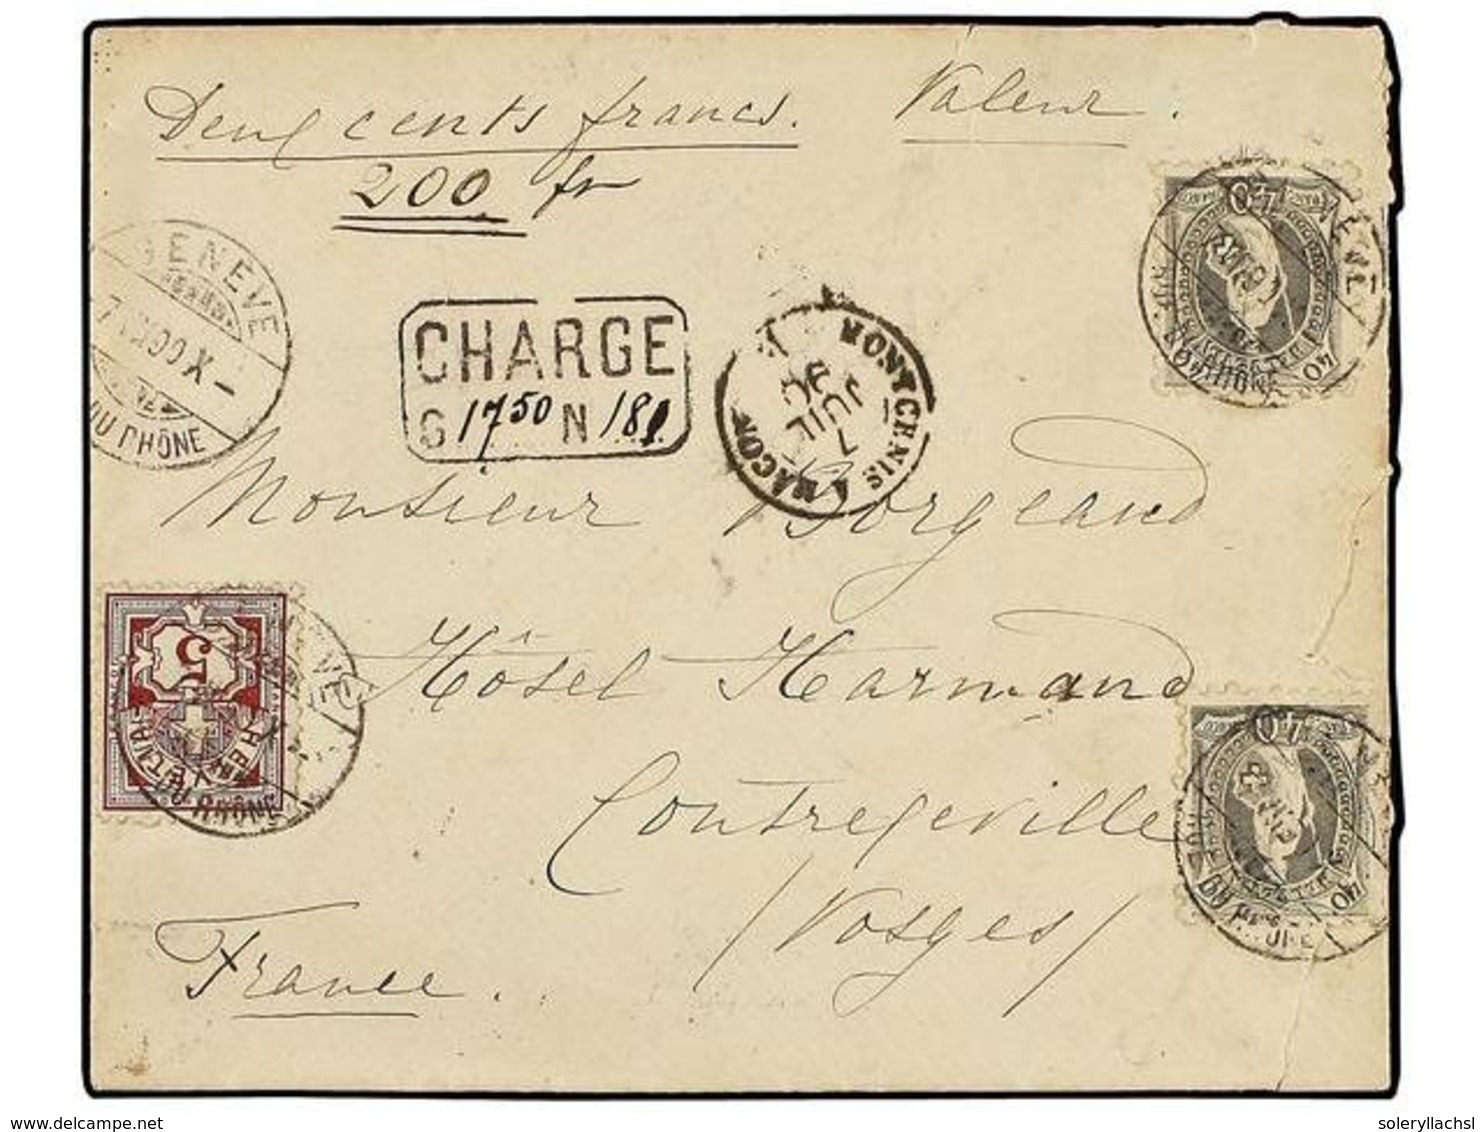 Deux cents francs. Valeur.
200 fr
GENEVE
DU RHÔNE
CHARGE
G 17 50 N 181
MONTCENIS A MACON
7
JUIL
Monsieur Borgeaud
Hôtel Harmand
Contrexeville
(Vosges)
France.
40
40
5
HELVETIA
DU RHÔNE
40
40
www.delcampe.net
soleryllachsl